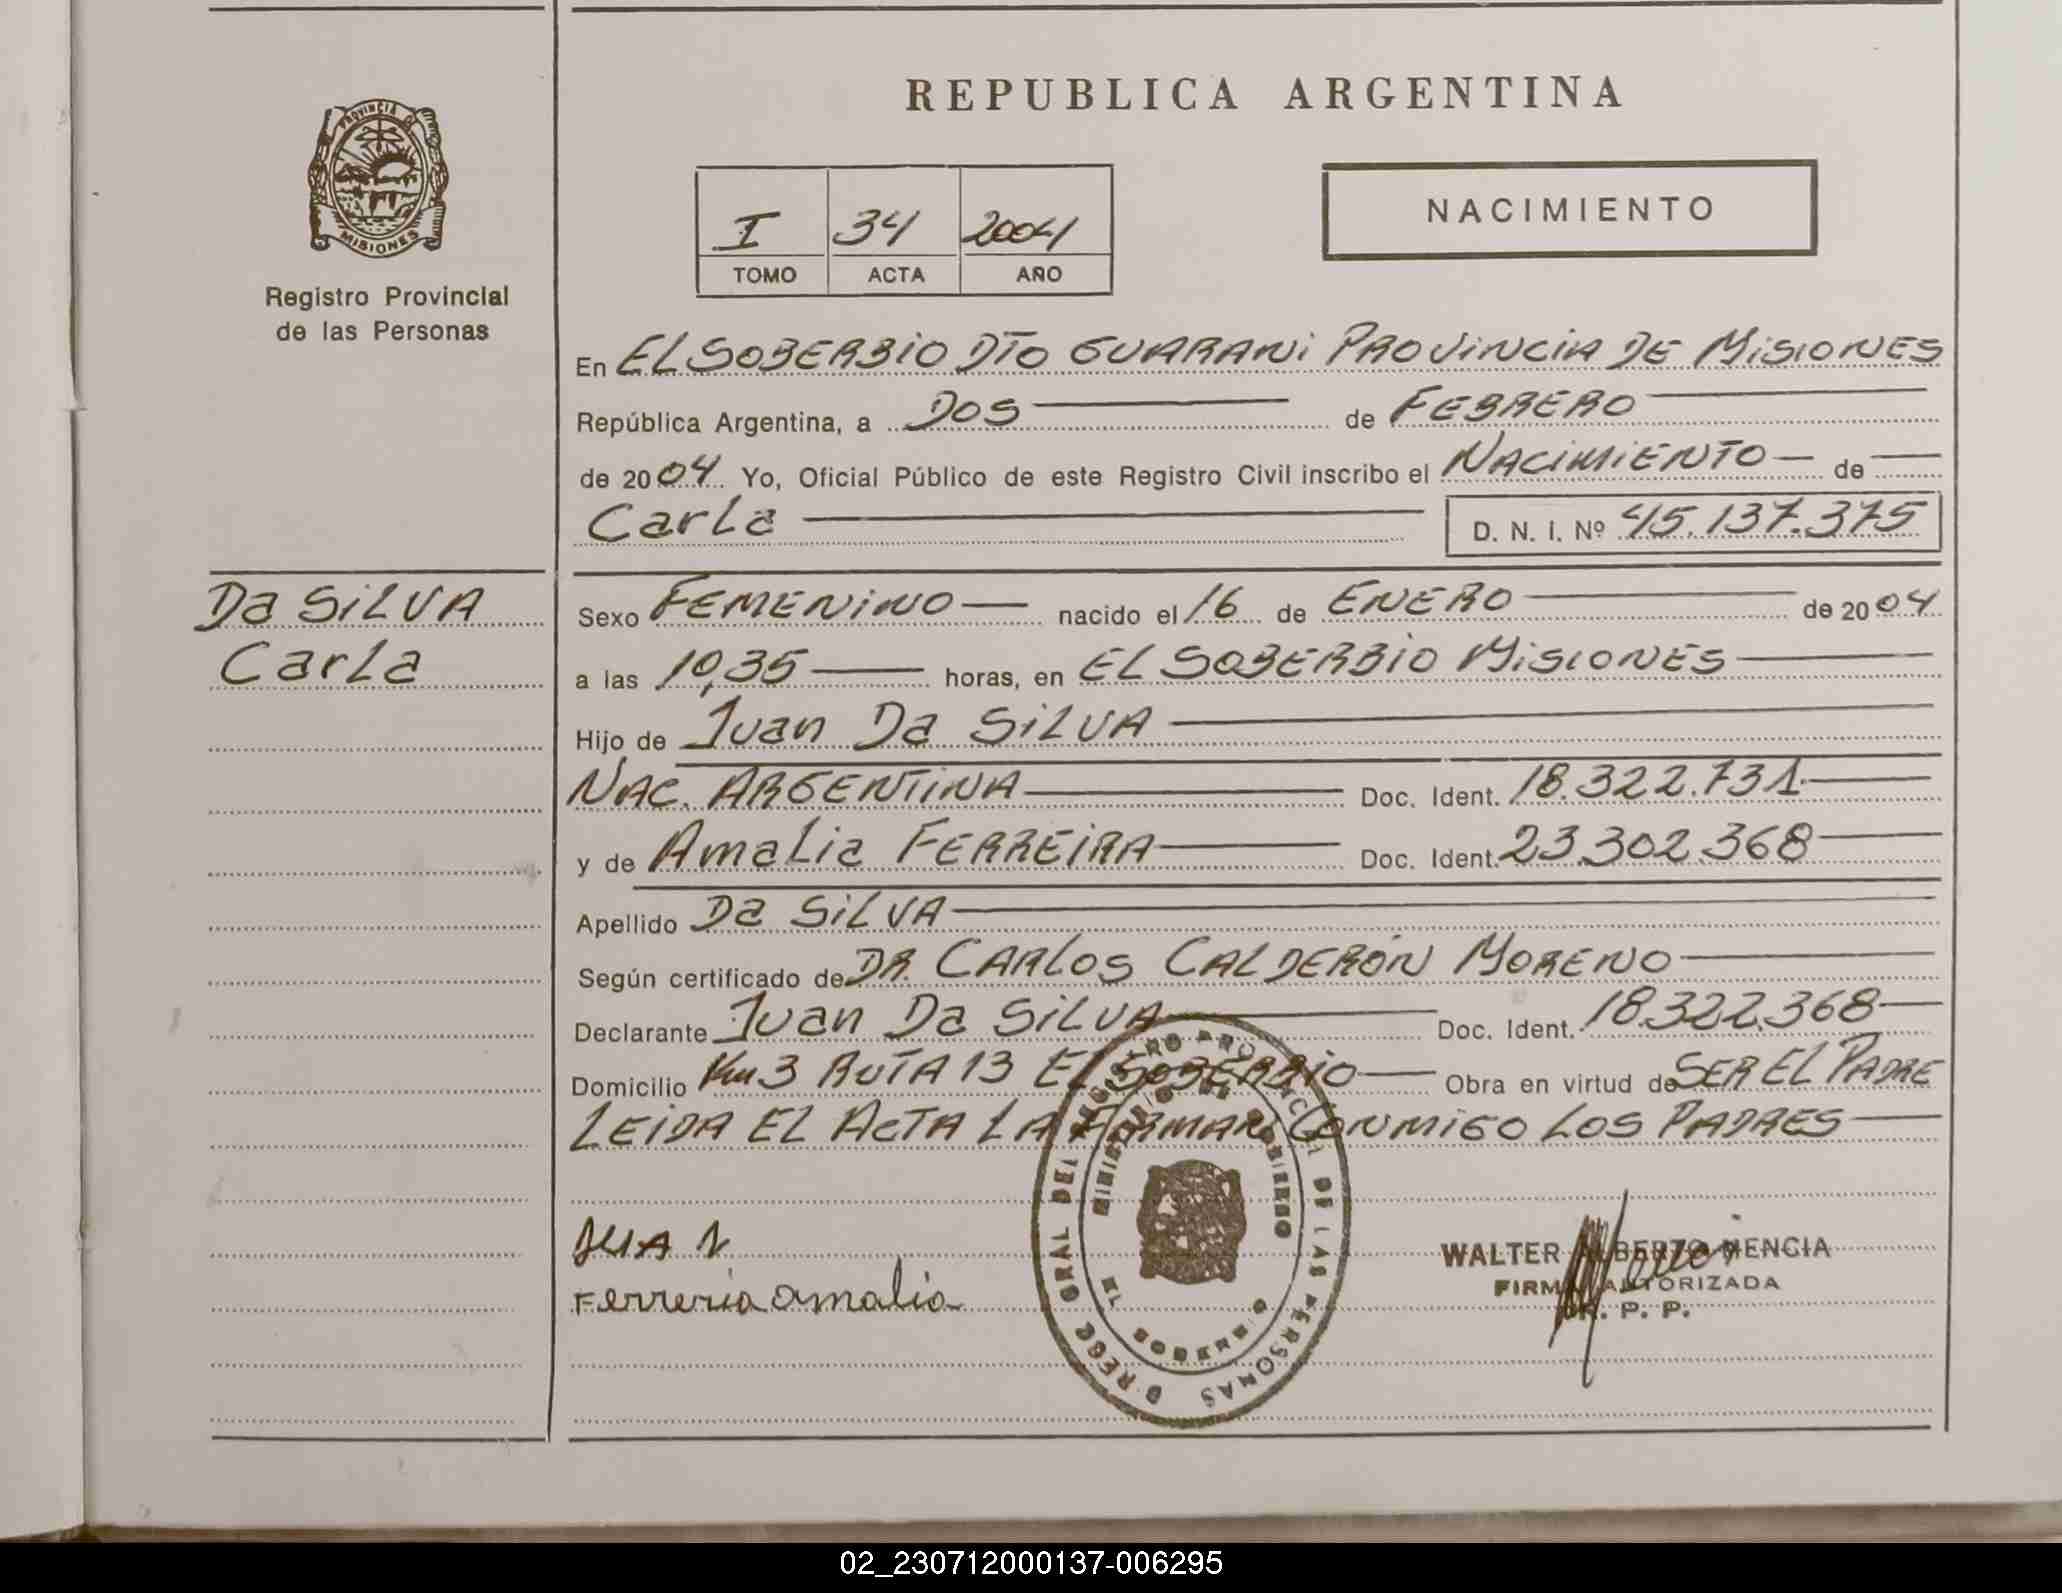 REPUBLICA ARGENTINA
PROVINCIA DE
MISIONES
Registro Provincial
de las Personas
I 34 2004
TOMO ACTA AÑO
NACIMIENTO
En EL SOBERBIO DTO GUARANI PROVINCIA DE MISIONES
República Argentina, a DOS de FEBRERO
de 2004 Yo, Oficial Público de este Registro Civil inscribo el NACIMIENTO de
Carla D. N. I. Nº 45.137.375
Da SILVA
Carla
Sexo FEMENINO nacido el 16 de ENERO de 2004
a las 10,35 horas, en EL SOBERBIO MISIONES
Hijo de Juan Da SILVA
NAC. ARGENTINA Doc. Ident. 18.322.731
y de Amalia FERREIRA Doc. Ident. 23.302.368
Apellido Da SILVA
Según certificado de DR. CARLOS CALDERÓN MORENO
Declarante Juan Da SILVA Doc. Ident. 18.322.368
Domicilio Km 3 RUTA 13 EL SOBERBIO Obra en virtud de SER EL PADRE
LEIDA EL ACTA LA FIRMAN CONMIGO LOS PADRES
Ferreria amalia
WALTER ALBERTO MENCIA
FIRMA AUTORIZADA
R. P. P.
GRAL DEL REGISTRO PROVINCIAL DE LAS PERSONAS
EL SOBERBIO
02_230712000137-006295